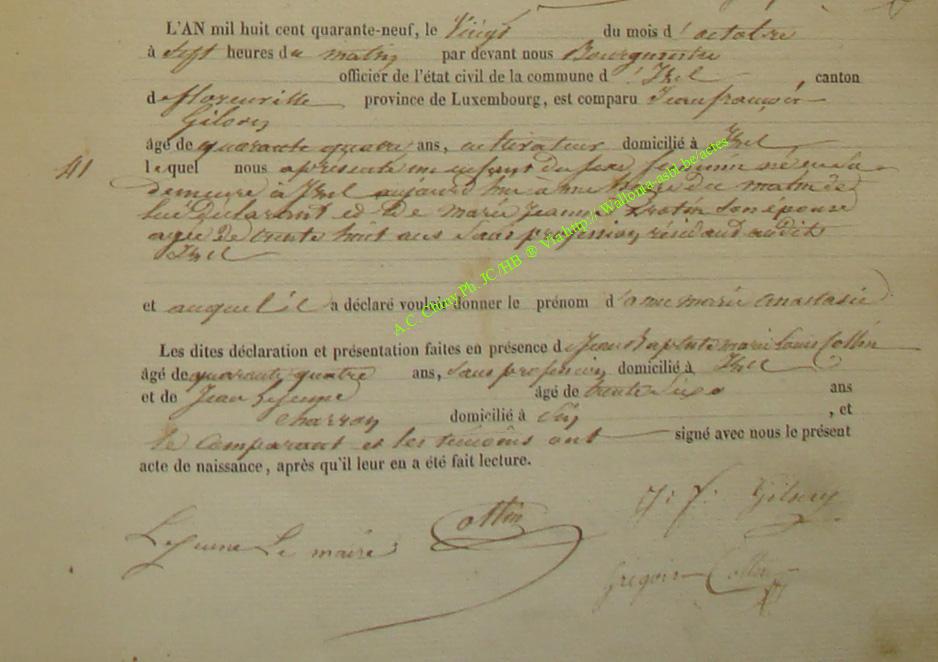 L'AN mil huit cent quarante-neuf, le Vingt du mois d'octobre
à Sept heures du matin par devant nous Bourgmestre
officier de l'état civil de la commune d'Izel, canton
de florenville province de Luxembourg, est comparu Jean françois
âgé de quarante quatre ans, cultivateur domicilié à Izel
41
lequel nous a présenté un enfant du sexe féminin né en sa
demeure à Izel aujourd'hui à une heure du matin de
lui déclarant et de marie Jeanne son épouse
agée de trente huit ans Sans profession, résidant audit
Izel
et auquel il a déclaré vouloir donner le prénom d'anne marie anastasie
Les dites déclaration et présentation faites en présence de Jean Baptiste marie Louis Collin
âgé de quarante quatre ans, Sans profession domicilié à Izel
et de Jean Lejeune âgé de trente Six ans
Charron domicilié à , et
le Comparant et les témoins ont signé avec nous le présent
acte de naissance, après qu'il leur en a été fait lecture.
J: f.
Lejeune Le maire Collin
Grégoire Collin
A.C. Chiny Ph. JC /HB ® Via http:// Wallonia-asbl.be/actes